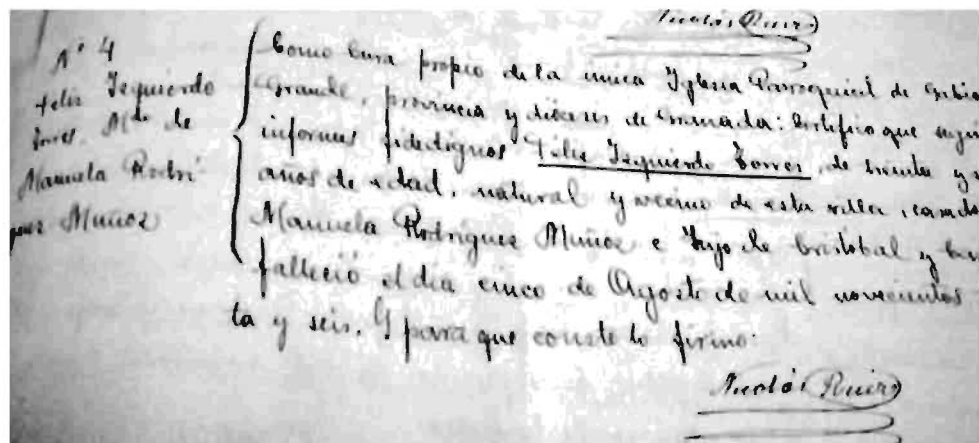 Nicolás Ruiz
Nº 4
Felix Izquierdo
Torres. Mdo de
Manuela Rodrí-
guez Muñoz
Como Cura propio de la unica Iglesia Parroquial de Gabia
Grande, provincia y diócesis de Granada: Certifico que segun
informes fidedignos Félix Izquierdo Torres, de treinta y
años de edad, natural y vecino de esta villa, casado
Manuela Rodríguez Muñoz e hijo de Cristobal y
falleció el dia cinco de Agosto de mil novecientos
ta y seis. Y para que conste lo firmo.
Nicolás Ruiz